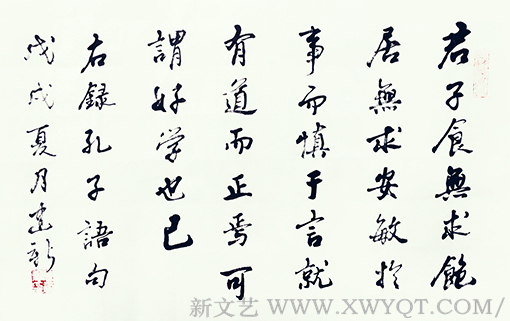 君子食無求飽
居無求安敏於
事而慎于言就
有道而正焉可
謂好学也已
右録孔子語句
戊戌夏月建新
新文艺 WWW.XWYQT.COM/